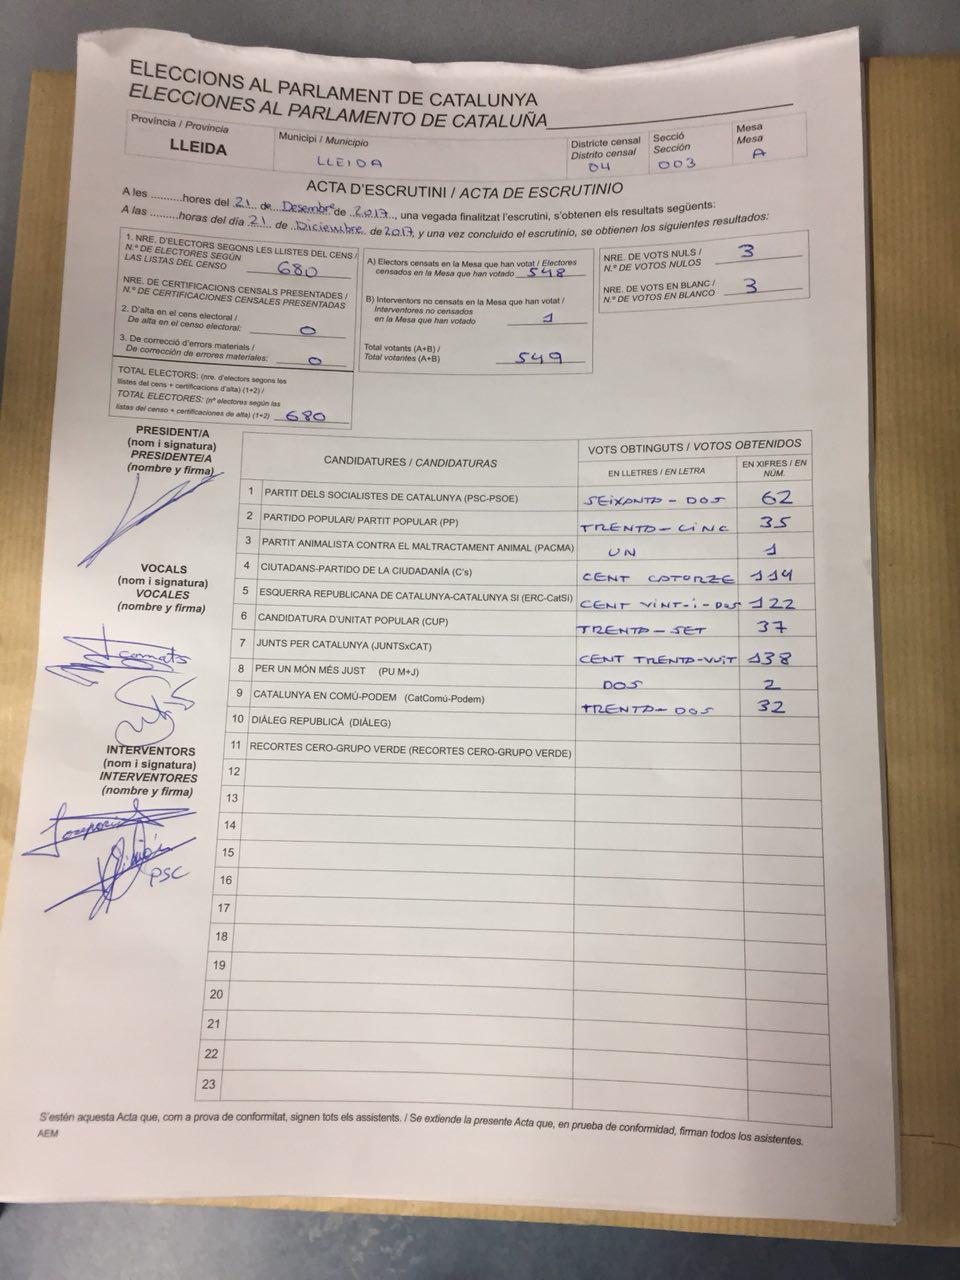 ELECCIONS AL PARLAMENT DE CATALUNYA
ELECCIONES AL PARLAMENTO DE CATALUÑA
Província / Provincia
LLEIDA
Municipi / Municipio
LLEIDA
Districte censal
Distrito censal
04
Secció
Sección
003
Mesa
Mesa
A
ACTA D'ESCRUTINI / ACTA DE ESCRUTINIO
A les .........hores del 21 de Desembre de 2017, una vegada finalitzat l'escrutini, s'obtenen els resultats següents:
A las .........horas del día 21 de Diciembre de 2017, y una vez concluido el escrutinio, se obtienen los siguientes resultados:
1. NRE. D'ELECTORS SEGONS LES LLISTES DEL CENS /
N.º DE ELECTORES SEGÚN
LAS LISTAS DEL CENSO 680
NRE. DE CERTIFICACIONS CENSALS PRESENTADES /
N.º DE CERTIFICACIONES CENSALES PRESENTADAS
2. D'alta en el cens electoral /
De alta en el censo electoral: 0
3. De correcció d'errors materials /
De corrección de errores materiales: 0
TOTAL ELECTORS: (nre. d'electors segons les
llistes del cens + certificacions d'alta) (1+2) /
TOTAL ELECTORES: (nº electores según las
listas del censo + certificaciones de alta) (1+2) 680
A) Electors censats en la Mesa que han votat / Electores
censados en la Mesa que han votado 548
B) Interventors no censats en la Mesa que han votat /
Interventores no censados
en la Mesa que han votado 1
Total votants (A+B) /
Total votantes (A+B) 549
NRE. DE VOTS NULS /
N.º DE VOTOS NULOS 3
NRE. DE VOTS EN BLANC /
N.º DE VOTOS EN BLANCO 3
PRESIDENT/A
(nom i signatura)
PRESIDENTE/A
(nombre y firma)
VOCALS
(nom i signatura)
VOCALES
(nombre y firma)
INTERVENTORS
(nom i signatura)
INTERVENTORES
(nombre y firma)
PSC
CANDIDATURES / CANDIDATURAS
VOTS OBTINGUTS / VOTOS OBTENIDOS
EN LLETRES / EN LETRA
EN XIFRES / EN NÚM.
1 PARTIT DELS SOCIALISTES DE CATALUNYA (PSC-PSOE) SEIXANTA-DOS 62
2 PARTIDO POPULAR/ PARTIT POPULAR (PP) TRENTA-CINC 35
3 PARTIT ANIMALISTA CONTRA EL MALTRACTAMENT ANIMAL (PACMA) UN 1
4 CIUTADANS-PARTIDO DE LA CIUDADANÍA (C's) CENT CATORZE 114
5 ESQUERRA REPUBLICANA DE CATALUNYA-CATALUNYA SÍ (ERC-CatSí) CENT VINT-I-DOS 122
6 CANDIDATURA D'UNITAT POPULAR (CUP) TRENTA-SET 37
7 JUNTS PER CATALUNYA (JUNTSxCAT) CENT TRENTA-VUIT 138
8 PER UN MÓN MÉS JUST (PU M+J) DOS 2
9 CATALUNYA EN COMÚ-PODEM (CatComú-Podem) TRENTA-DOS 32
10 DIÀLEG REPUBLICÀ (DIÀLEG)
11 RECORTES CERO-GRUPO VERDE (RECORTES CERO-GRUPO VERDE)
12
13
14
15
16
17
18
19
20
21
22
23
S'estén aquesta Acta que, com a prova de conformitat, signen tots els assistents. / Se extiende la presente Acta que, en prueba de conformidad, firman todos los asistentes.
AEM